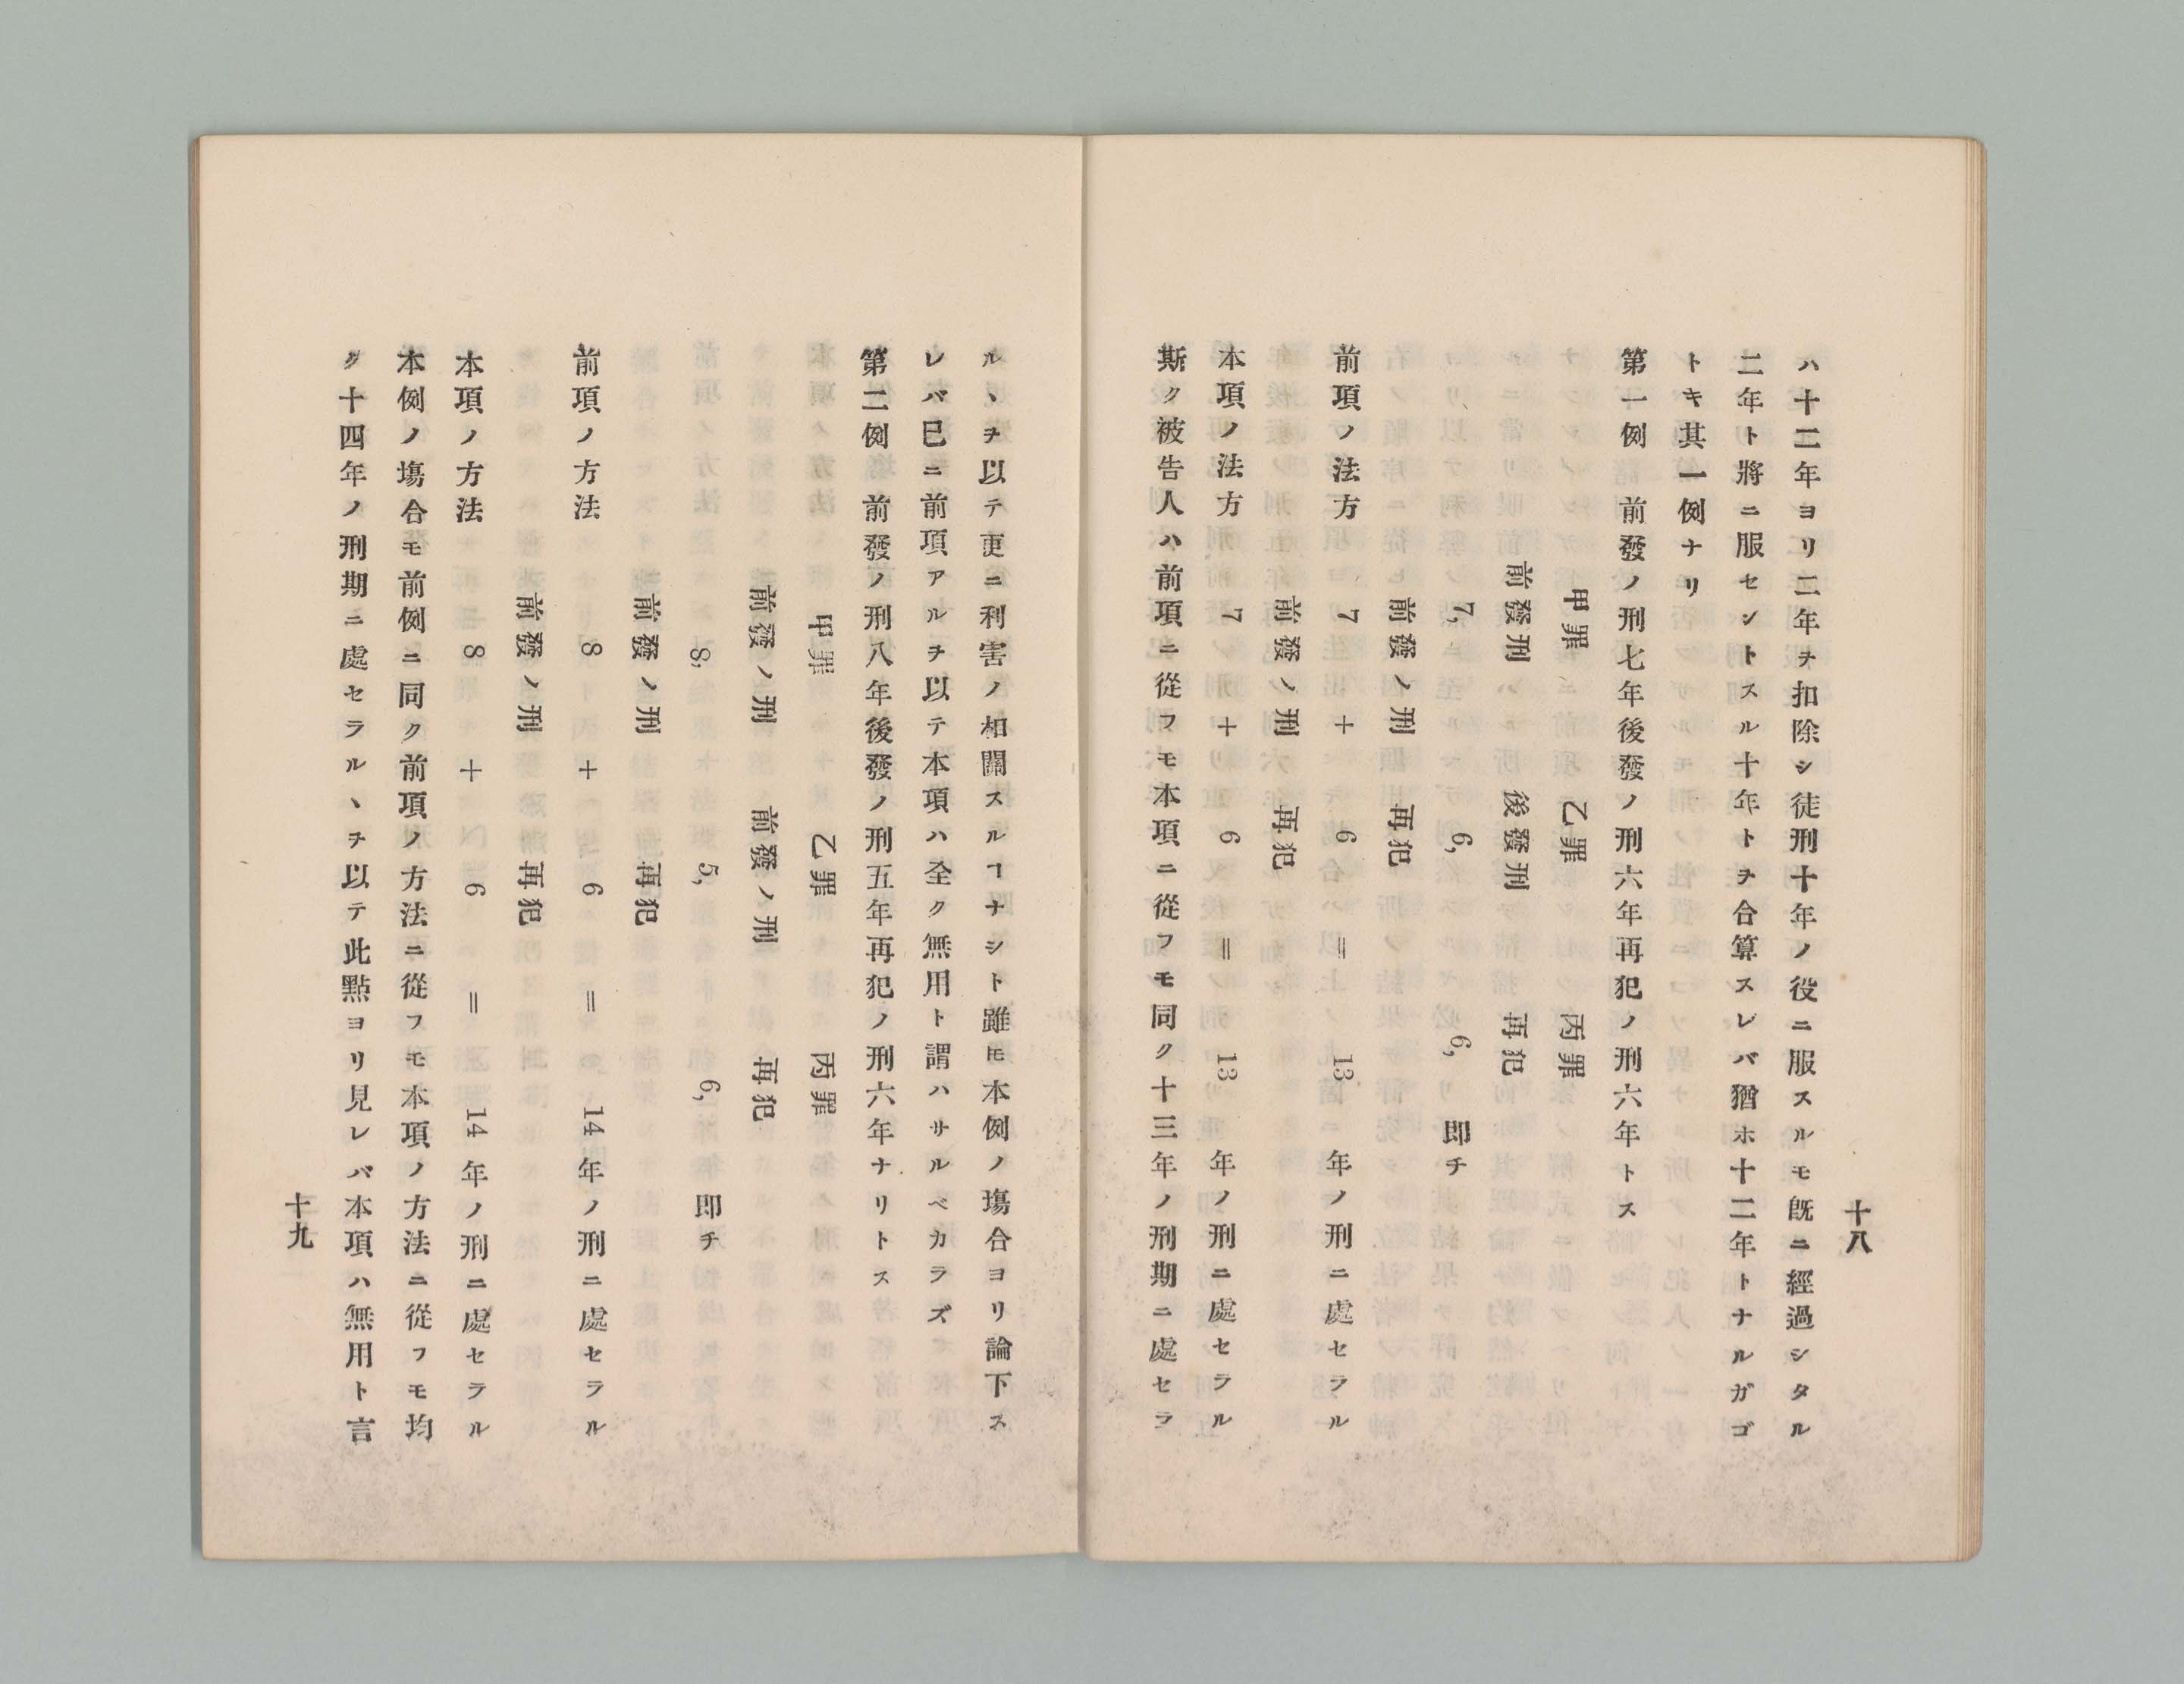 十八
ハ十二年ヨリ二年ヲ扣除シ徒刑十年ノ役ニ服スルモ既ニ經過シタル
二年ト將ニ服セントスル十年トヲ合算スレバ猶ホ十二年トナルガゴ
トキ其一例ナリ
第一例 前發ノ刑七年後發ノ刑六年再犯ノ刑六年トス
甲罪 乙罪 丙罪
前發刑 後發刑 再犯
7, 6, 6, 即チ
前發ノ刑 再犯
前項ノ法方 7 + 6 = 13 年ノ刑ニ處セラル
前發ノ刑 再犯
本項ノ法方 7 + 6 = 13 年ノ刑ニ處セラル
斯ク被告人ハ前項ニ從フモ本項ニ從フモ同ク十三年ノ刑期ニ處セラ
ルヽヲ以テ更ニ利害ノ相關スルヿナシト雖𪜈本例ノ塲合ヨリ論下ス
レバ已ニ前項アルヲ以テ本項ハ全ク無用ト謂ハサルベカラズ
第二例 前發ノ刑八年後發ノ刑五年再犯ノ刑六年ナリトス
甲罪 乙罪 丙罪
前發ノ刑 前發ノ刑 再犯
8, 5, 6, 即チ
前發ノ刑 再犯
前項ノ方法 8 + 6 = 14 年ノ刑ニ處セラル
前發ノ刑 再犯
本項ノ方法 8 + 6 = 14 年ノ刑ニ處セラル
本例ノ塲合モ前例ニ同ク前項ノ方法ニ從フモ本項ノ方法ニ從フモ均
ク十四年ノ刑期ニ處セラルヽヲ以テ此點ヨリ見レバ本項ハ無用ト言
十九